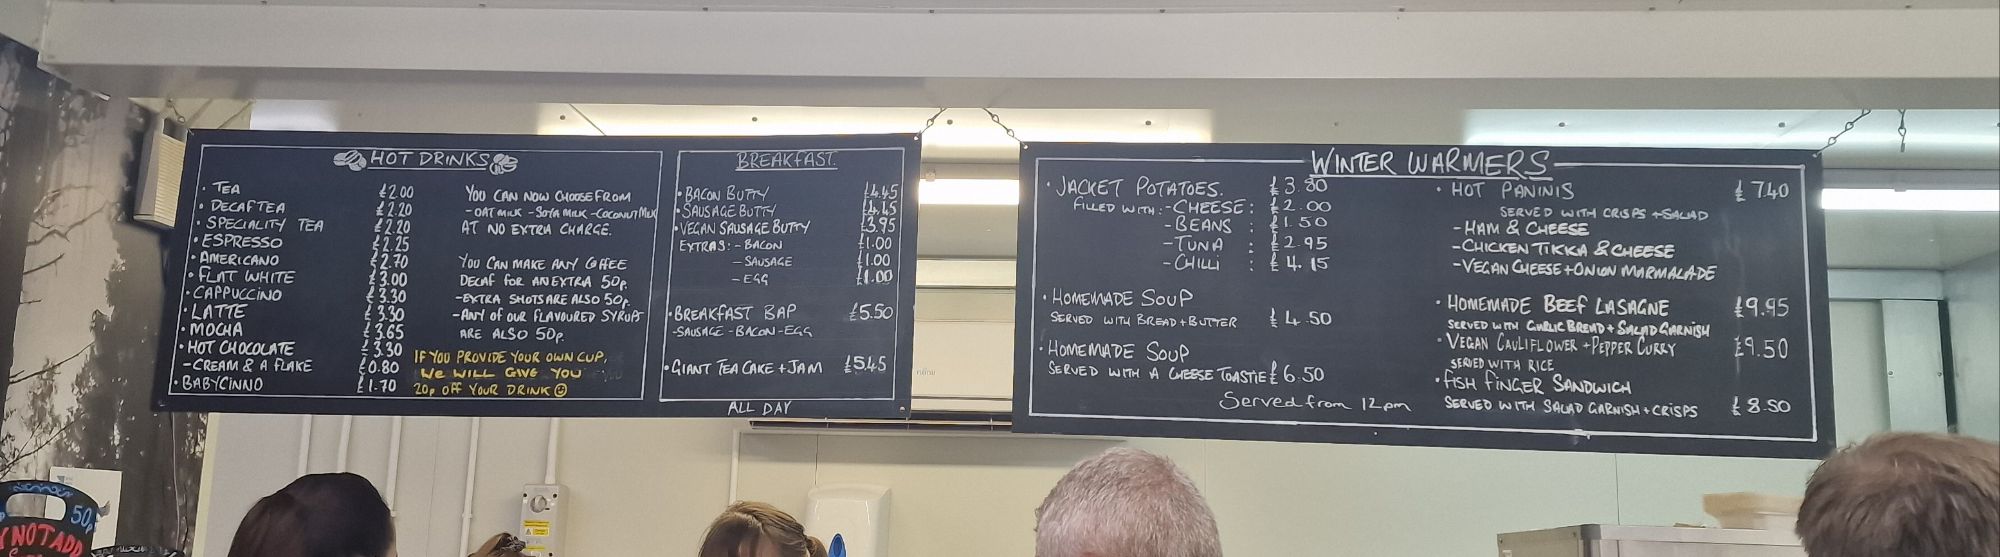 HOT DRINKS
· TEA £2.00
· DECAF TEA £2.20
· SPECIALITY TEA £2.20
· ESPRESSO £2.25
· AMERICANO £2.70
· FLAT WHITE £3.00
· CAPPUCCINO £3.30
· LATTE £3.30
· MOCHA £3.65
· HOT CHOCOLATE £3.30
- CREAM & A FLAKE £0.80
· BABYCINNO £1.70
YOU CAN NOW CHOOSE FROM
- OAT MILK - SOYA MILK - COCONUT MILK
AT NO EXTRA CHARGE.
YOU CAN MAKE ANY COFFEE
DECAF FOR AN EXTRA 50p.
- EXTRA SHOTS ARE ALSO 50p.
- ANY OF OUR FLAVOURED SYRUPS
ARE ALSO 50p.
IF YOU PROVIDE YOUR OWN CUP,
WE WILL GIVE YOU
20p OFF YOUR DRINK ☺
BREAKFAST.
· BACON BUTTY £4.45
· SAUSAGE BUTTY £4.45
· VEGAN SAUSAGE BUTTY £3.95
EXTRAS: - BACON £1.00
- SAUSAGE £1.00
- EGG £1.00
· BREAKFAST BAP £5.50
- SAUSAGE - BACON - EGG
· GIANT TEA CAKE + JAM £5.45
ALL DAY
WINTER WARMERS
· JACKET POTATOES. £3.80
FILLED WITH :- CHEESE : £2.00
- BEANS : £1.50
- TUNA : £2.95
- CHILLI : £4.15
· HOMEMADE SOUP
SERVED WITH BREAD + BUTTER £4.50
· HOMEMADE SOUP
SERVED WITH A CHEESE TOASTIE £6.50
· HOT PANINIS £7.40
SERVED WITH CRISPS + SALAD
- HAM & CHEESE
- CHICKEN TIKKA & CHEESE
- VEGAN CHEESE + ONION MARMALADE
· HOMEMADE BEEF LASAGNE £9.95
SERVED WITH GARLIC BREAD + SALAD GARNISH
· VEGAN CAULIFLOWER + PEPPER CURRY £9.50
SERVED WITH RICE
· FISH FINGER SANDWICH
SERVED WITH SALAD GARNISH + CRISPS £8.50
Served from 12pm
50p
NOT ADD